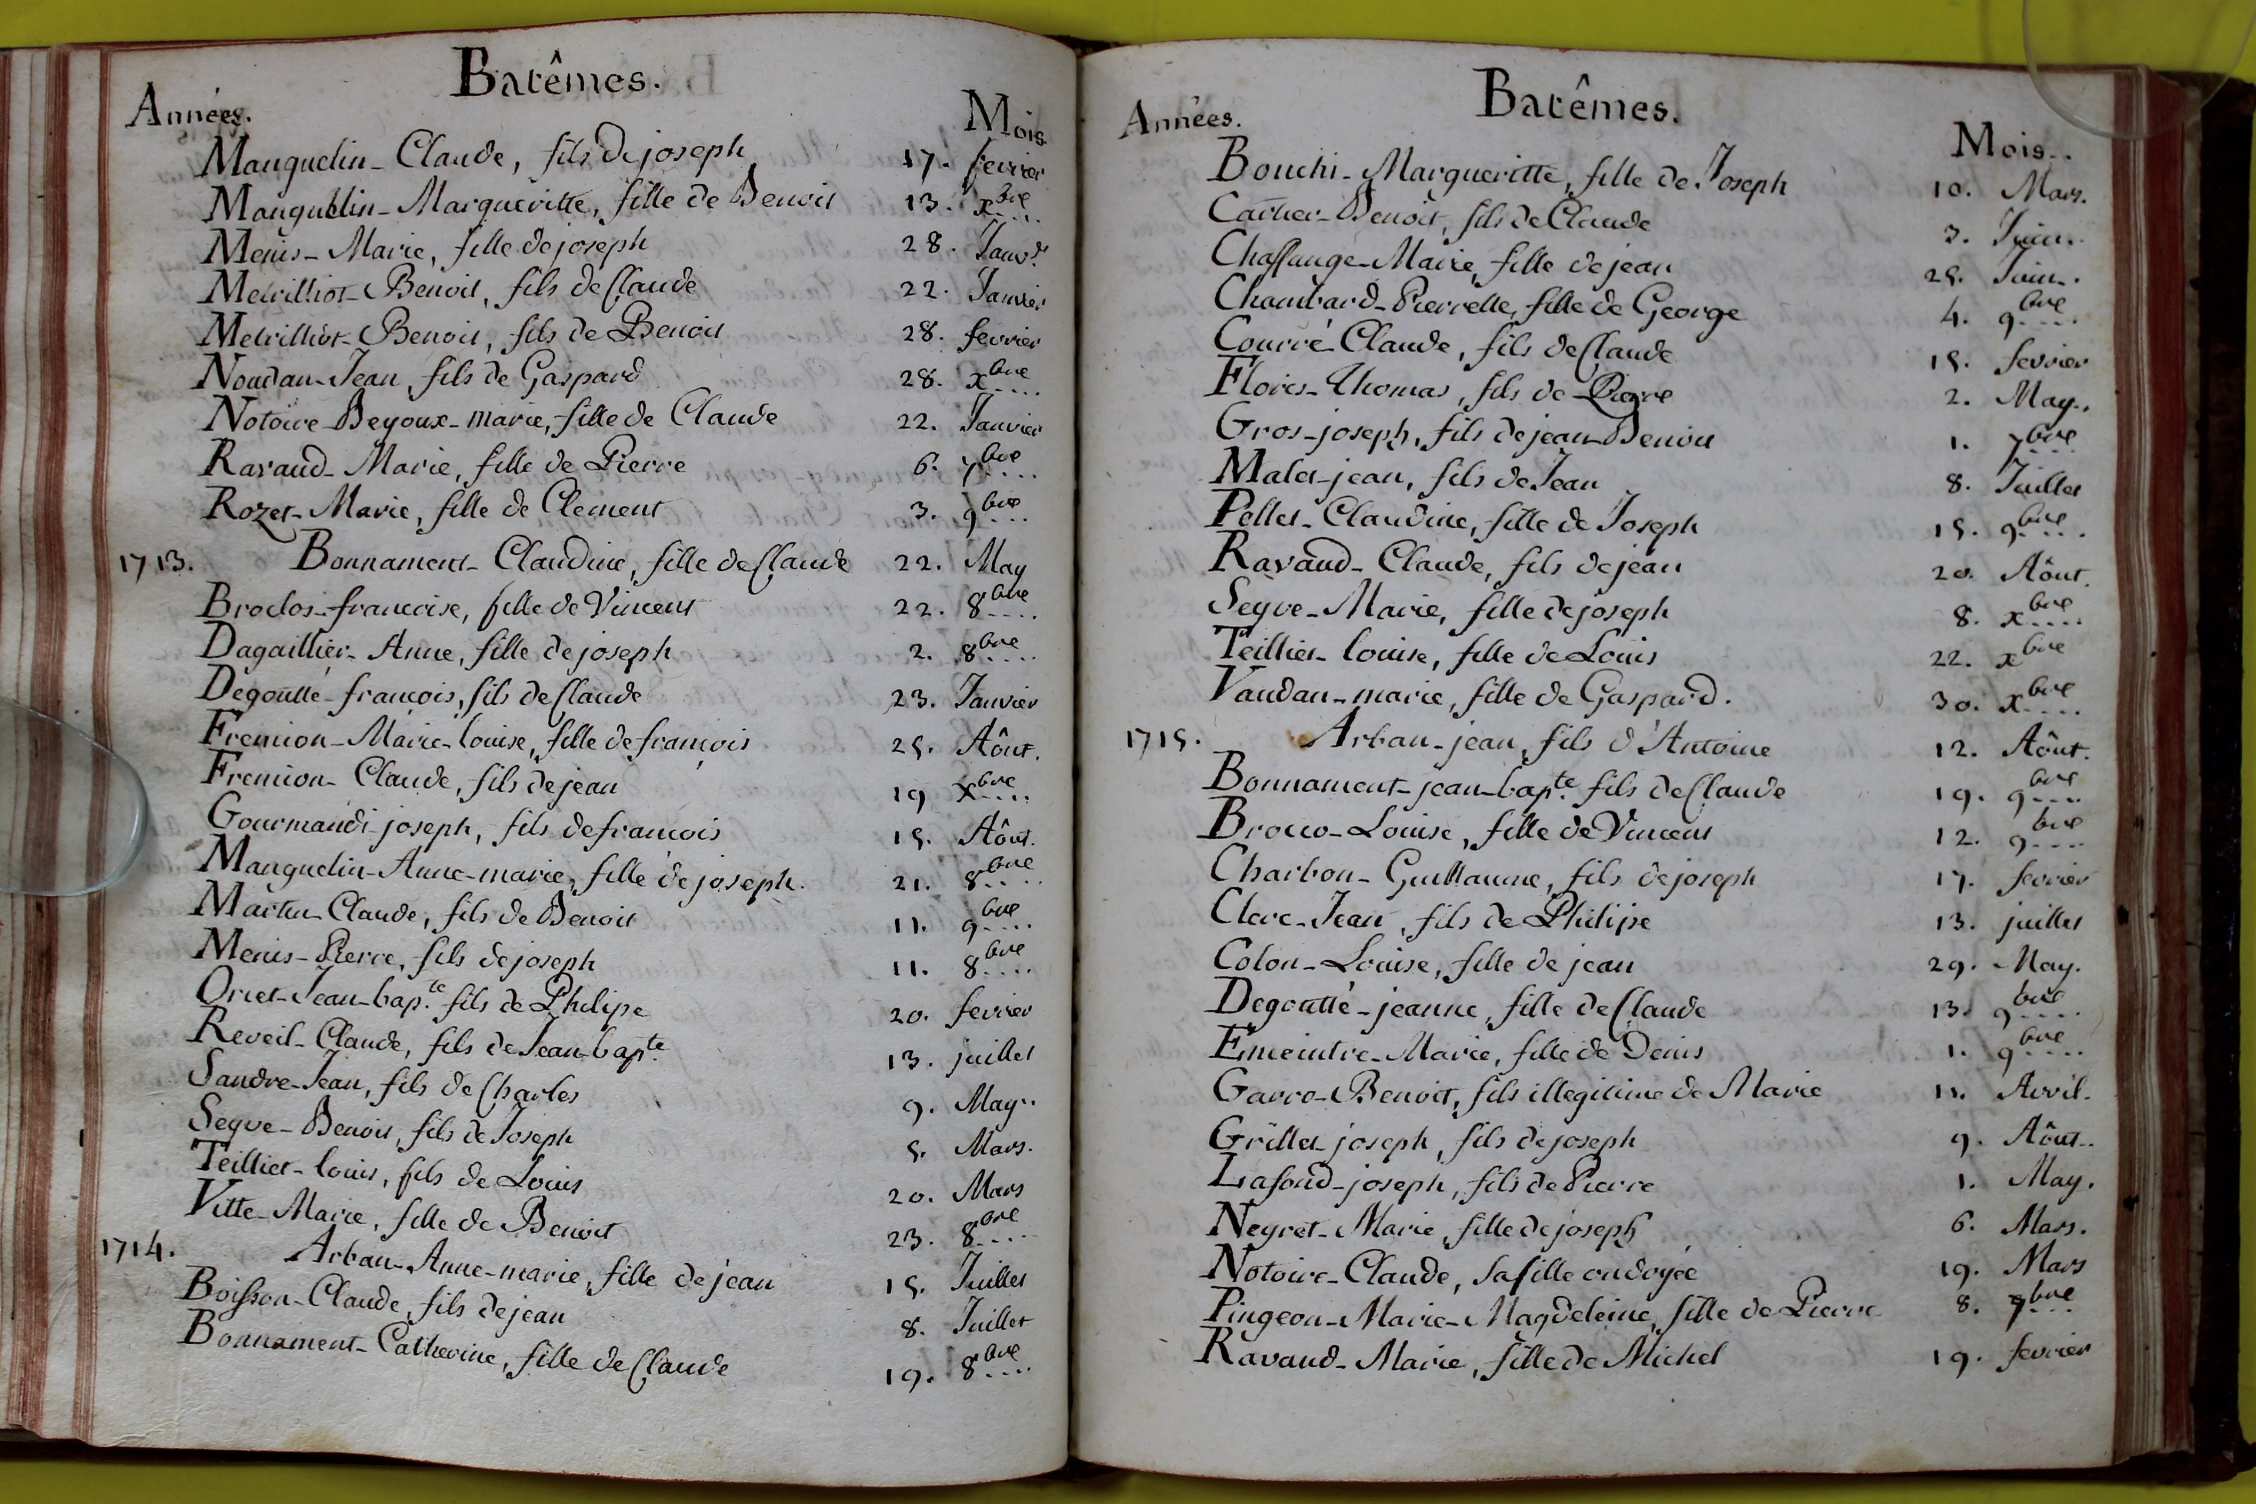 Batêmes.
Années. Mois
Manguelin - Claude, fils de joseph 17. fevrier
Manguelin - Margueritte, fille de Benoit 13. xbre
Menis - Marie, fille de joseph 28. Janvr
Metrilliot - Benoit, fils de Claude 22. Janvier
Metrilliot - Benoit, fils de Benoit 28. fevrier
Noudan - Jean, fils de Gaspard 28. xbre
Notoire - Beyoux - marie, fille de Claude 22. Janvier
Ravaud - Marie, fille de Pierre 6. 7bre
Rozet - Marie, fille de Clement 3. 9bre
1713. Bonnament - Claudine, fille de Claude 22. May
Broclos - francoise, fille de Vincent 22. 8bre
Dagaillier - Anne, fille de joseph 2. 8bre
Degoutté - francois, fils de Claude 23. Janvier
Fremion - Marie - louise, fille de françois 25. Aôut.
Fremion - Claude, fils de jean 19 xbre
Gourmandi - joseph, fils de francois 15. Aôut.
Manguelin - Anne - marie, fille de joseph. 21. 8bre
Martin - Claude, fils de Benoit 11. 9bre
Menis - Pierre, fils de joseph 11. 8bre
Oriet - Jean - bapte. fils de Philipe 20. fevrier
Reveil - Claude, fils de Jean - bapte. 13. juillet
Sandre - Jean, fils de Charles 9. May..
Seyve - Benoit, fils de Joseph 5. Mars.
Teillier - louis, fils de Louis 20. Mars
Vitte - Marie, fille de Benoit 23. 8bre
1714. Arban - Anne - marie, fille de jean 15. Juillet
Boisson - Claude, fils de jean 8. Juillet
Bonnament - Catherine, fille de Claude 19. 8bre
Batêmes.
Années. Mois..
Bouchi - Margueritte, fille de Joseph 10. Mars.
Cartier - Benoit, fils de Claude 3. Juin..
Chassange - Marie, fille de jean 25. Juin..
Chambard - Pierrette, fille de George 4. 9bre
Courré - Claude, fils de Claude 15. fevrier
Floris - Thomas, fils de Pierre 2. May..
Gros - joseph, fils de jean - Benoit 1. 7bre
Malet - jean, fils de Jean 8. Juillet
Pellet - Claudine, fille de Joseph 15. 9bre
Ravaud - Claude, fils de jean 20. Aôut.
Seyve - Marie, fille de joseph 8. xbre
Teillier - louise, fille de Louis 22. xbre
Vaudan - marie, fille de Gaspard. 30. xbre
1715. Arban - jean, fils d'Antoine 12. Aôut.
Bonnament - jean - bapte. fils de Claude 19. 9bre
Brocco - Louise, fille de Vincent 12. 9bre
Charbon - Guillaume, fils de joseph 17. fevrier
Clerc - Jean, fils de Philipe 13. juillet
Colon - Louise, fille de jean 29. May.
Degoutté - jeanne, fille de Claude 13. 9bre
Emeintre - Marie, fille de Denis 1. 9bre
Garro - Benoit, fils illegitime de Marie 11. Avril.
Grillet - joseph, fils de joseph 9. Aôut..
Lafond - joseph, fils de Pierre 1. May.
Neyret - Marie, fille de joseph 6. Mars.
Notoire - Claude, sa fille ondoyée 19. Mars
Pingeon - Marie - Magdeleine, fille de Pierre 8. 7bre
Ravaud - Marie, fille de Michel 19. fevrier